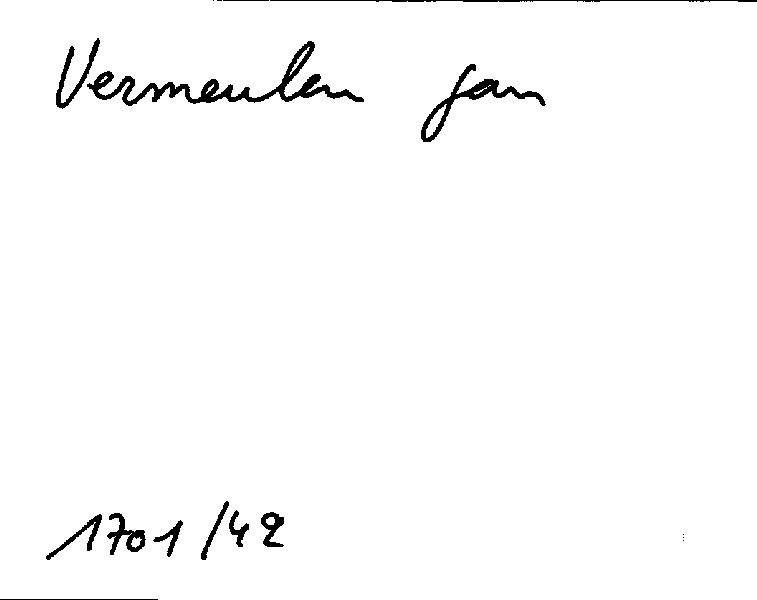 Vermeulen Jan
1701/42